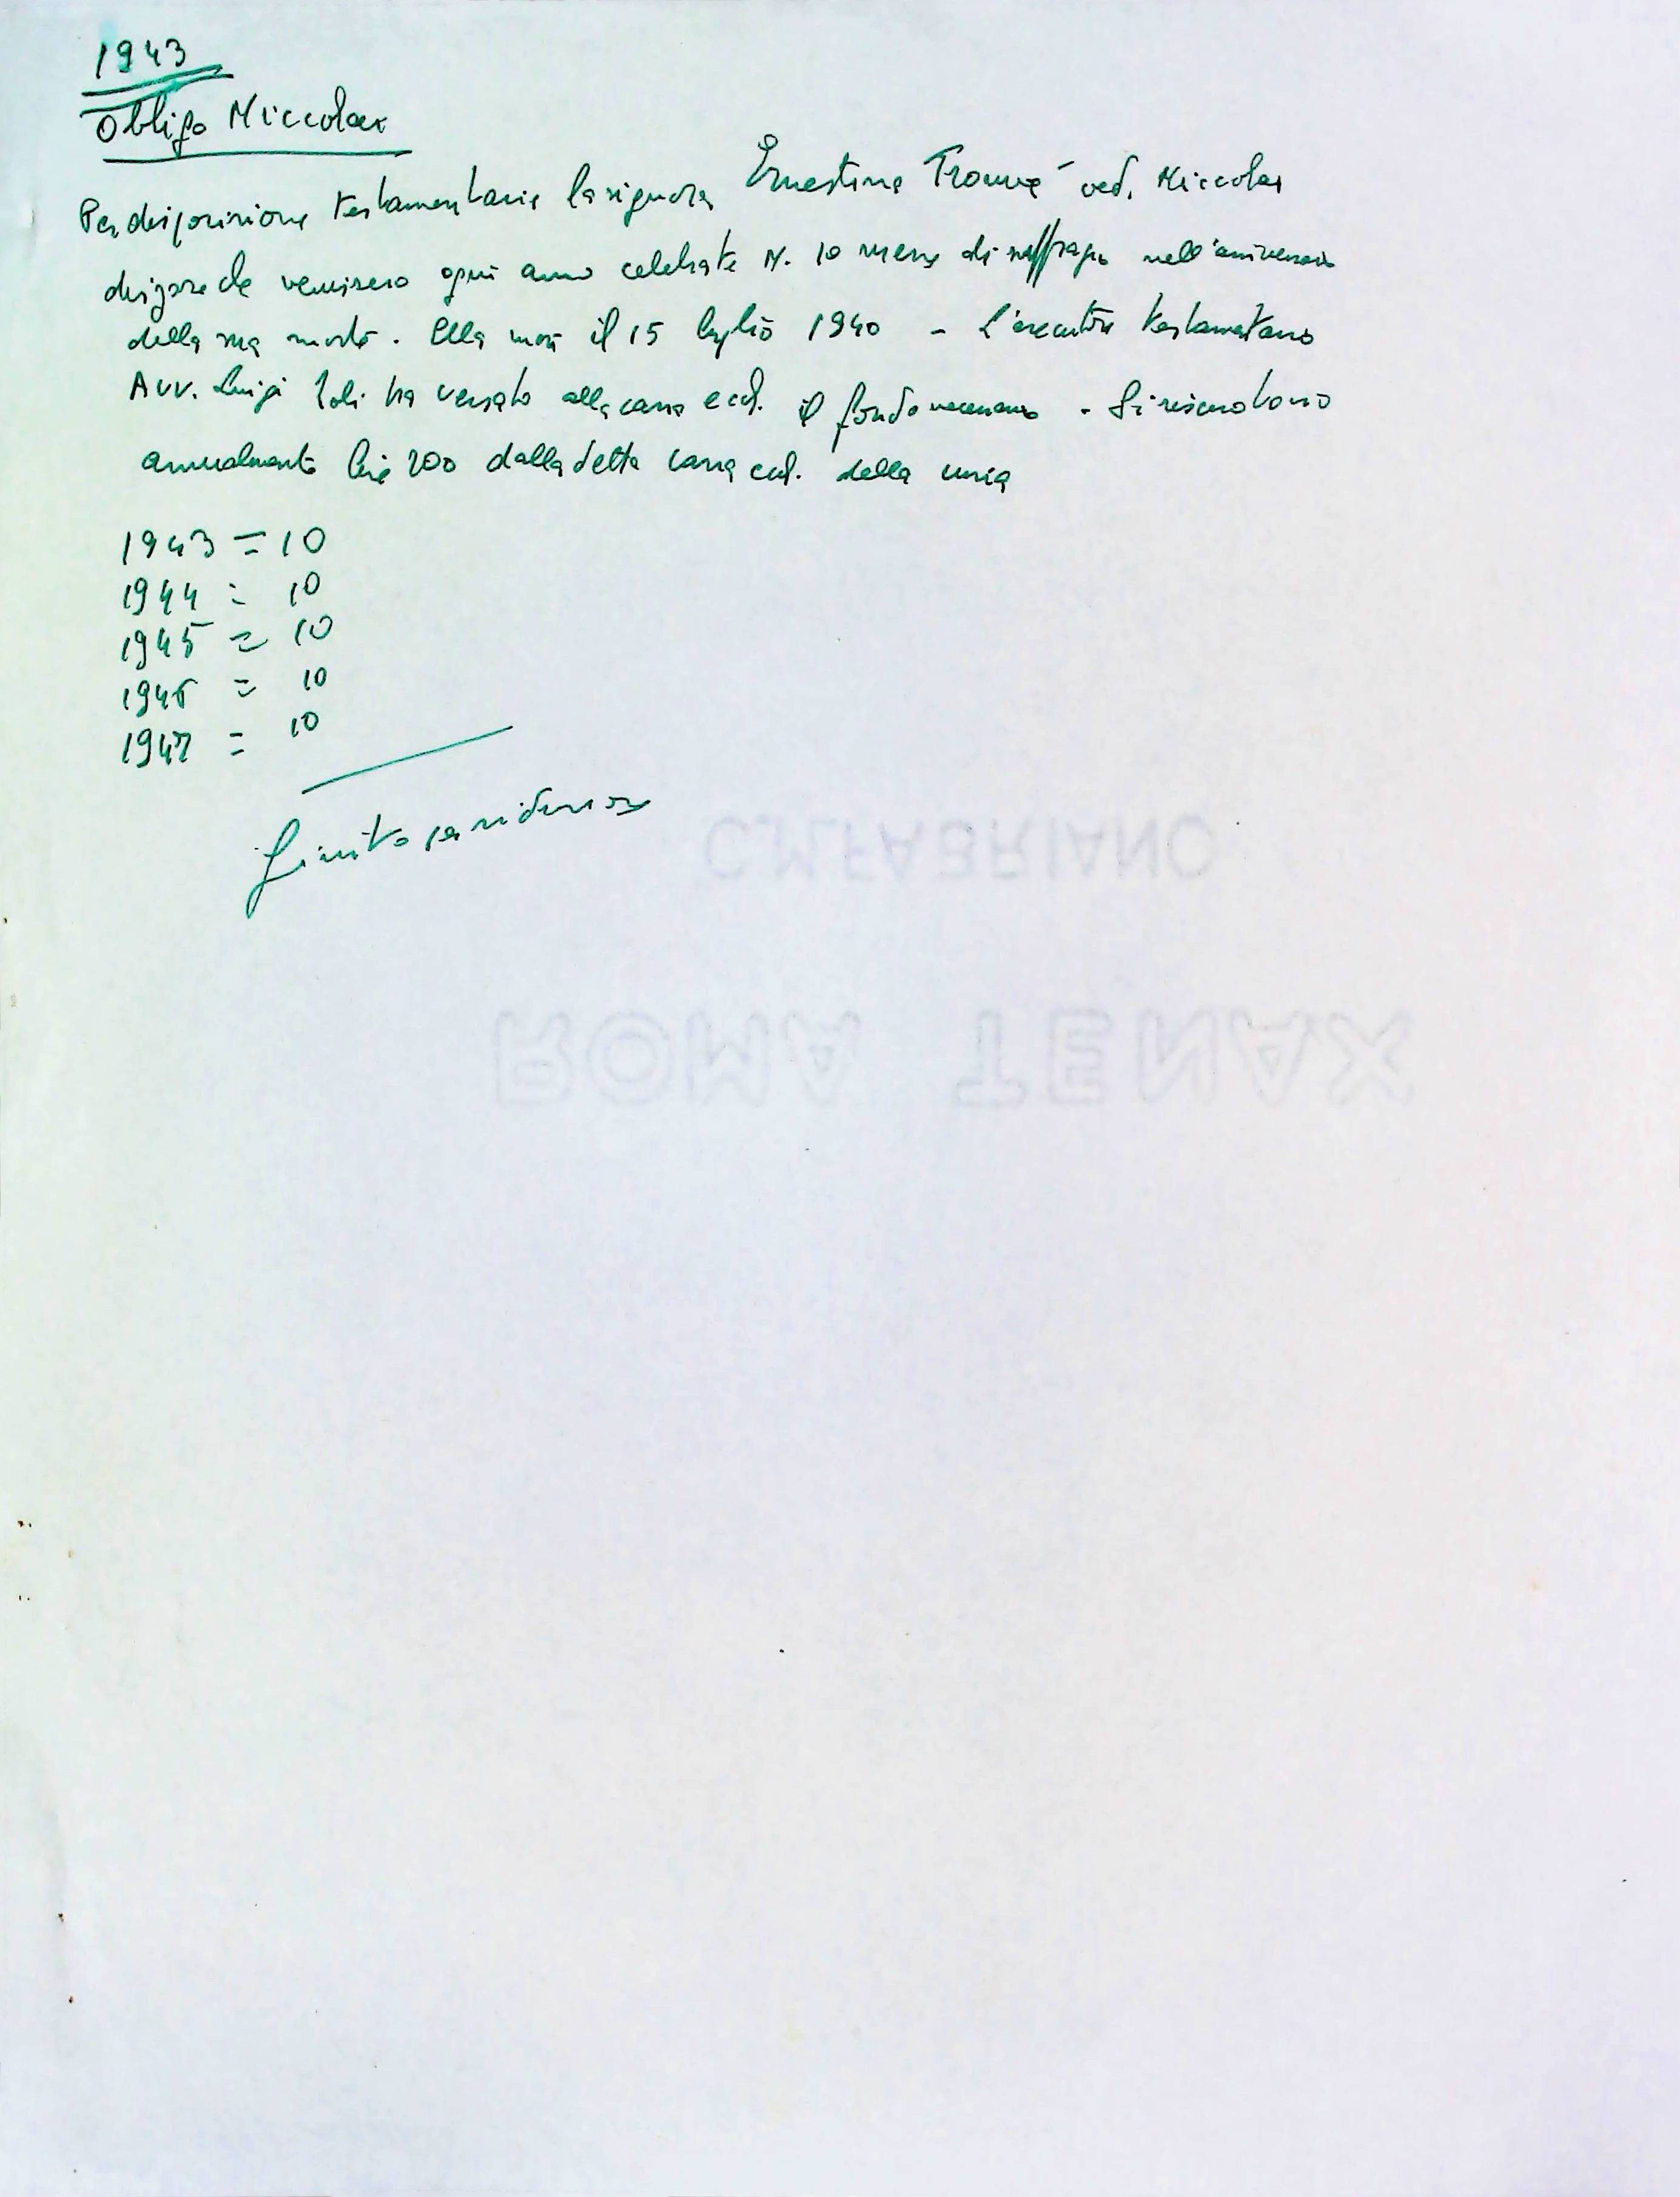 1943
Obligo Niccolai
Per disposizione testamentaria la signora Ernestina Trouvé ved. Niccolai
dispose che venissero ogni anno celebrate N. 10 messe di suffragio nell'anniversario
della sua morte. Ella morì il 15 luglio 1940 - L'esecutore testamentario
Avv. Luigi ha versato alla cassa eccl. il fondo necessario - Si riscuotono
annualmente lire 200 dalla detta cassa eccl. della curia
1943 = 10
1944 = 10
1945 = 10
1946 = 10
1947 = 10
finito
C.M.FABRIANO
ROMA TENAX